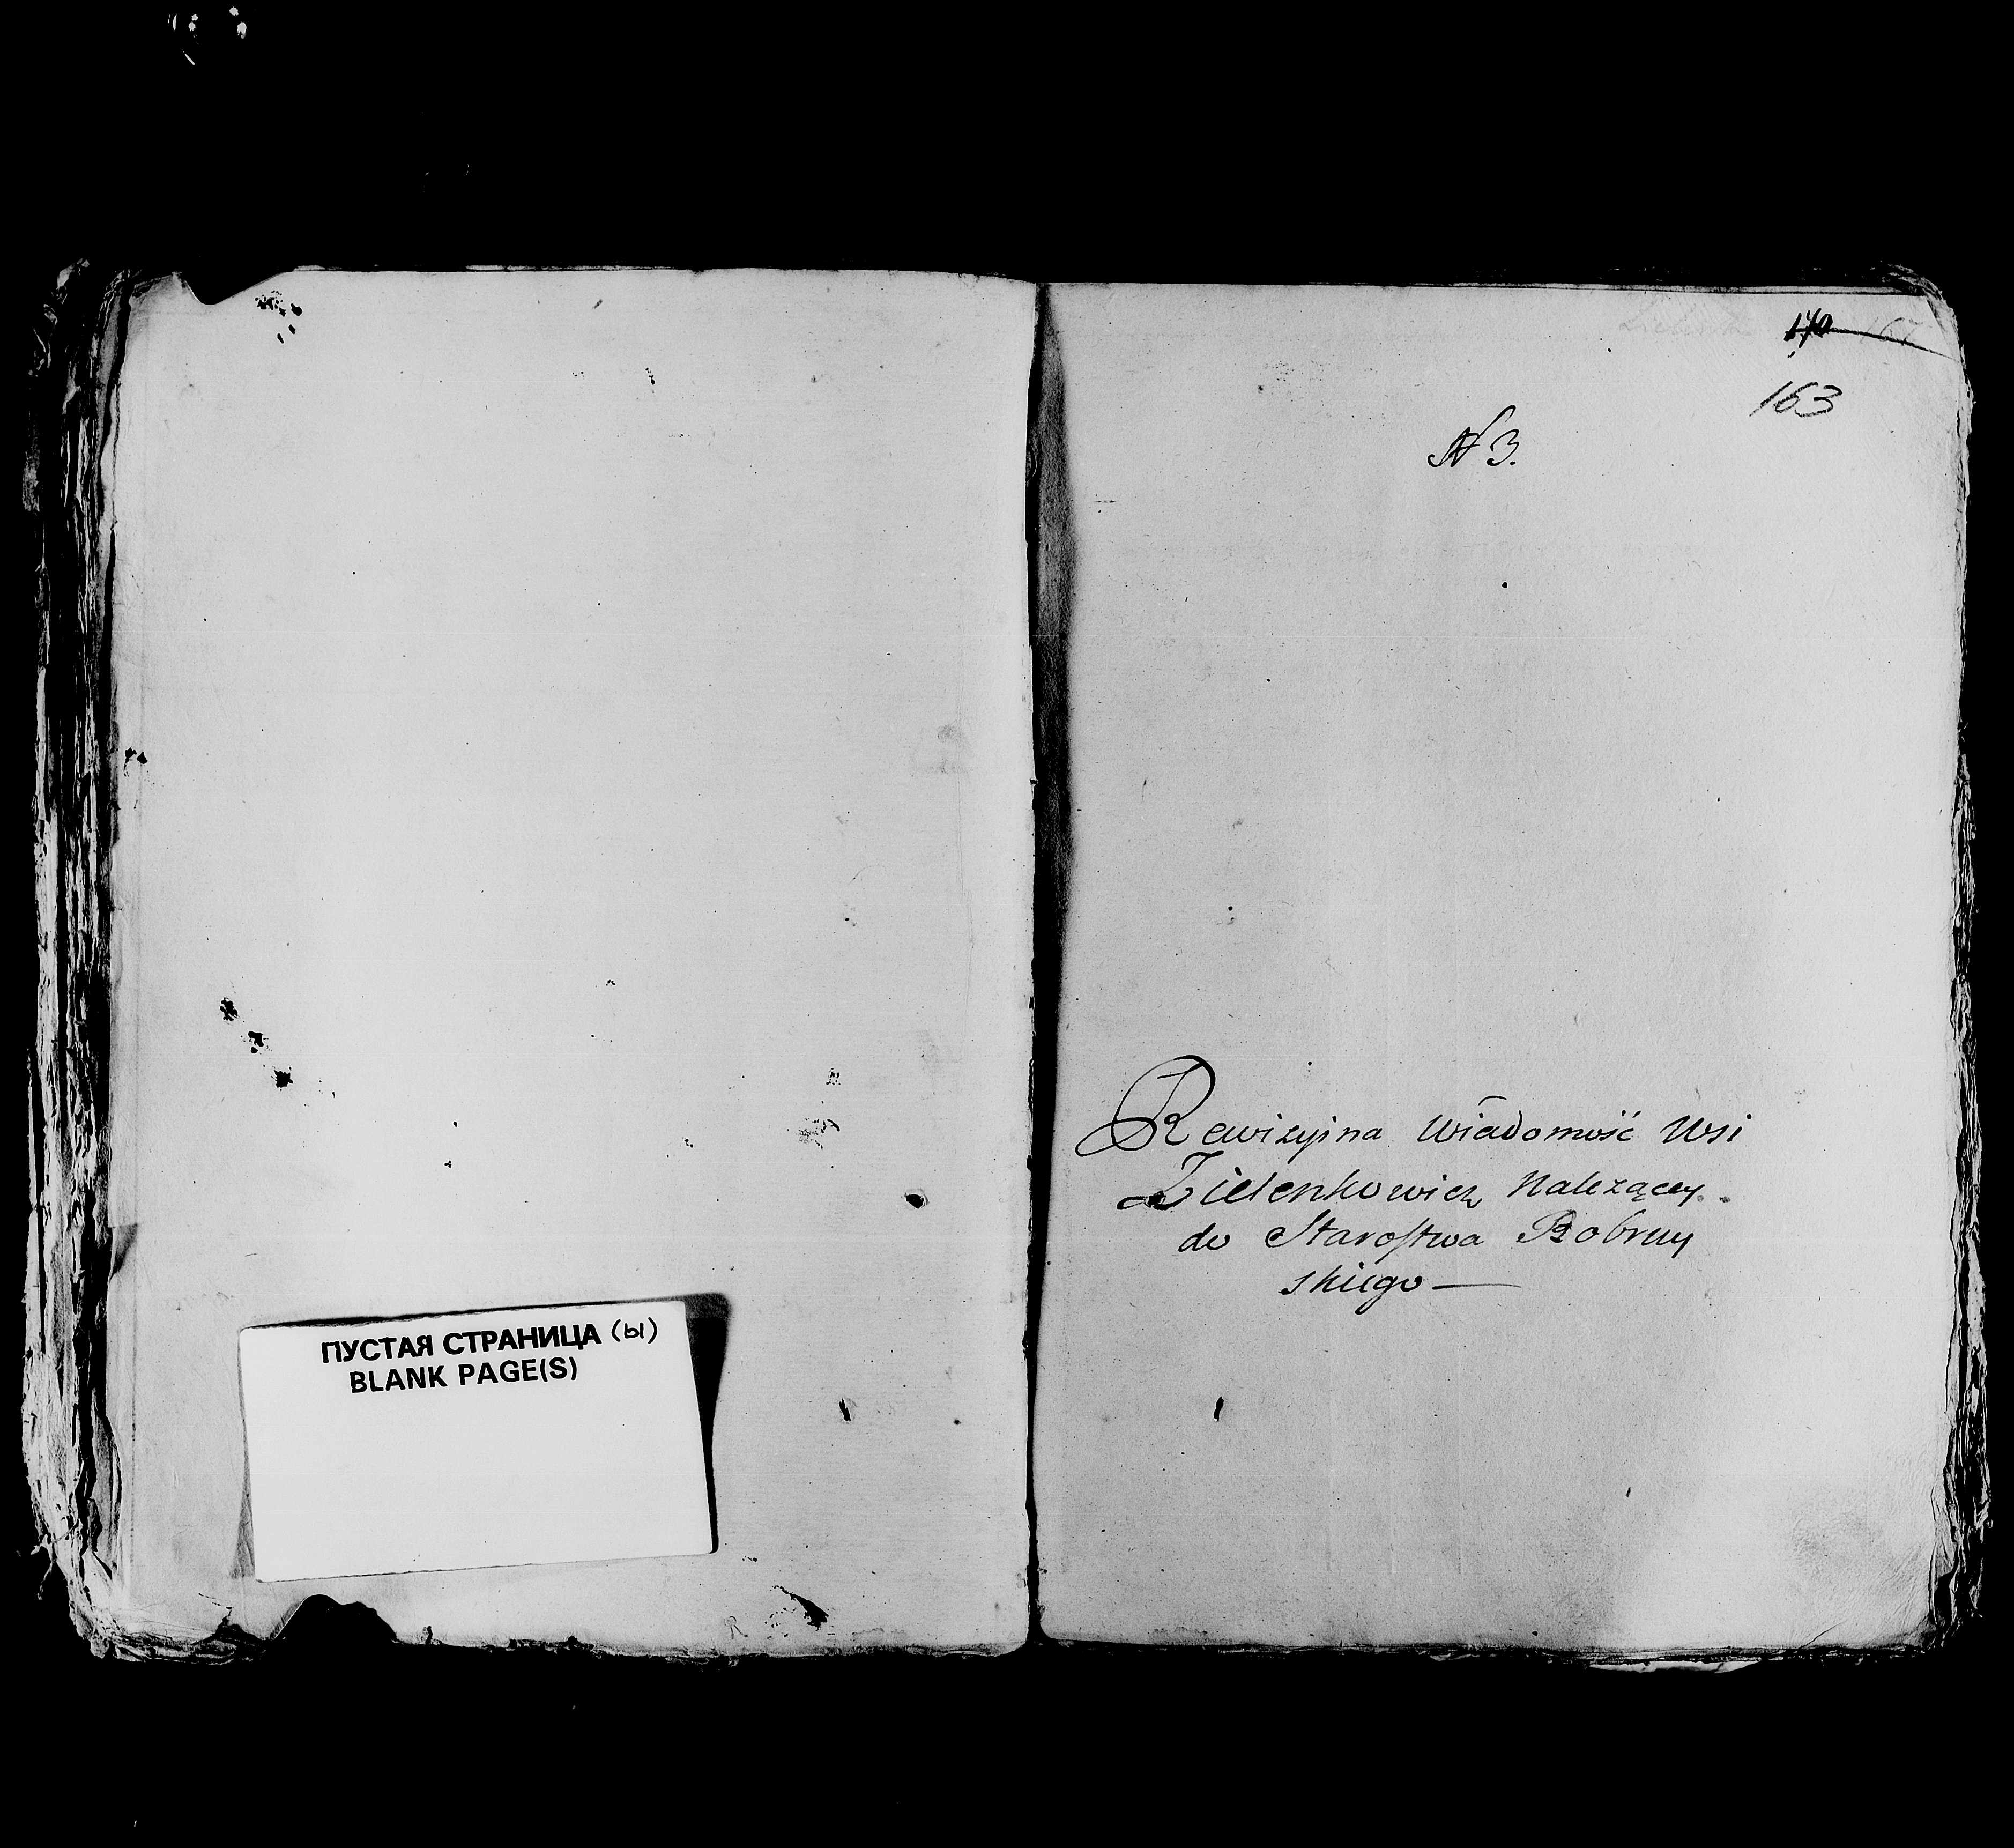 ПУСТАЯ СТРАНИЦА (ы)
BLANK PAGE(S)
170 167
163
N 3.
Rewizyjna Wiadomość Wsi
Zielenkowicz Należącey
do Starostwa Bobruy
skiego —